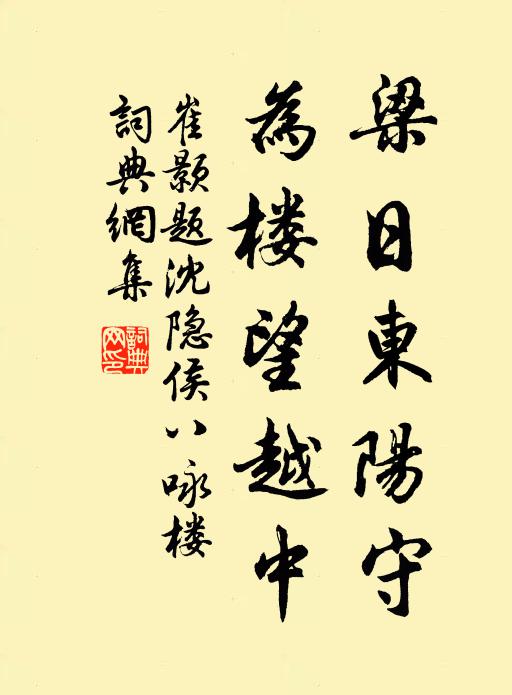 梁日東陽守
為楼望越中
崔颢题沈隐侯八咏楼
詞典網集
詞典
网印